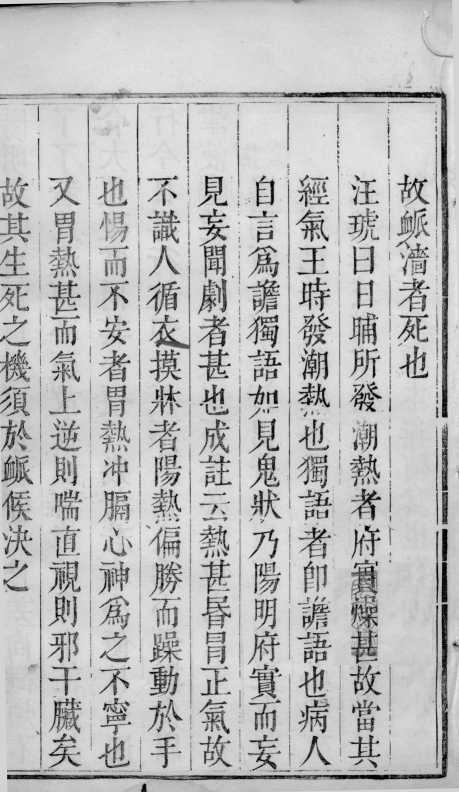 故䘑濇者死也
汪琥曰日晡所發潮熱者府實燥甚故當其
經氣王時發潮熱也獨語者卽譫語也病人
自言爲譫獨語如見鬼狀乃陽明府實而妄
見妄聞劇者甚也成註云熱甚昬冒正氣故
不識人循衣摸牀者陽熱偏勝而躁動於手
也惕而不安者胃熱冲膈心神爲之不寧也
又胃熱甚而氣上逆則喘直視則邪干臟矣
故其生死之機須於䘑候决之